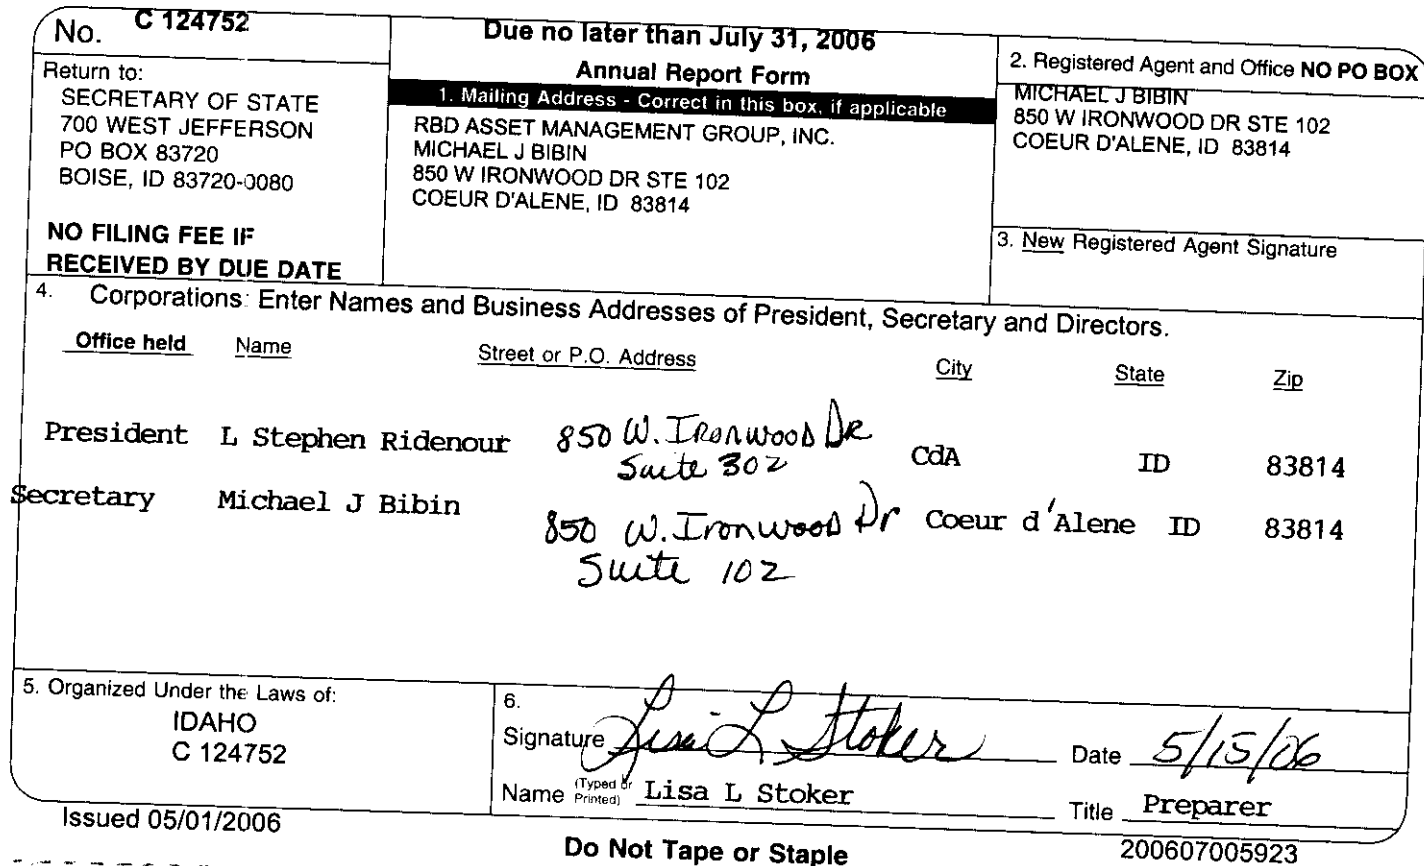 No. C 124752
Return to:
SECRETARY OF STATE
700 WEST JEFFERSON
PO BOX 83720
BOISE, ID 83720-0080
NO FILING FEE IF
RECEIVED BY DUE DATE
Due no later than July 31, 2006
Annual Report Form
1. Mailing Address - Correct in this box, if applicable
RBD ASSET MANAGEMENT GROUP, INC.
MICHAEL J BIBIN
850 W IRONWOOD DR STE 102
COEUR D'ALENE, ID 83814
2. Registered Agent and Office NO PO BOX
MICHAEL J BIBIN
850 W IRONWOOD DR STE 102
COEUR D'ALENE, ID 83814
3. New Registered Agent Signature
4. Corporations: Enter Names and Business Addresses of President, Secretary and Directors.
Office held Name Street or P.O. Address City State Zip
President L Stephen Ridenour 850 W. Ironwood Dr CdA ID 83814
Suite 302
Secretary Michael J Bibin 850 W. Ironwood Dr Coeur d'Alene ID 83814
Suite 102
5. Organized Under the Laws of:
IDAHO
C 124752
6.
Signature Lisa L Stoker Date 5/15/06
Name (Typed or Printed) Lisa L Stoker Title Preparer
Issued 05/01/2006
Do Not Tape or Staple
200607005923